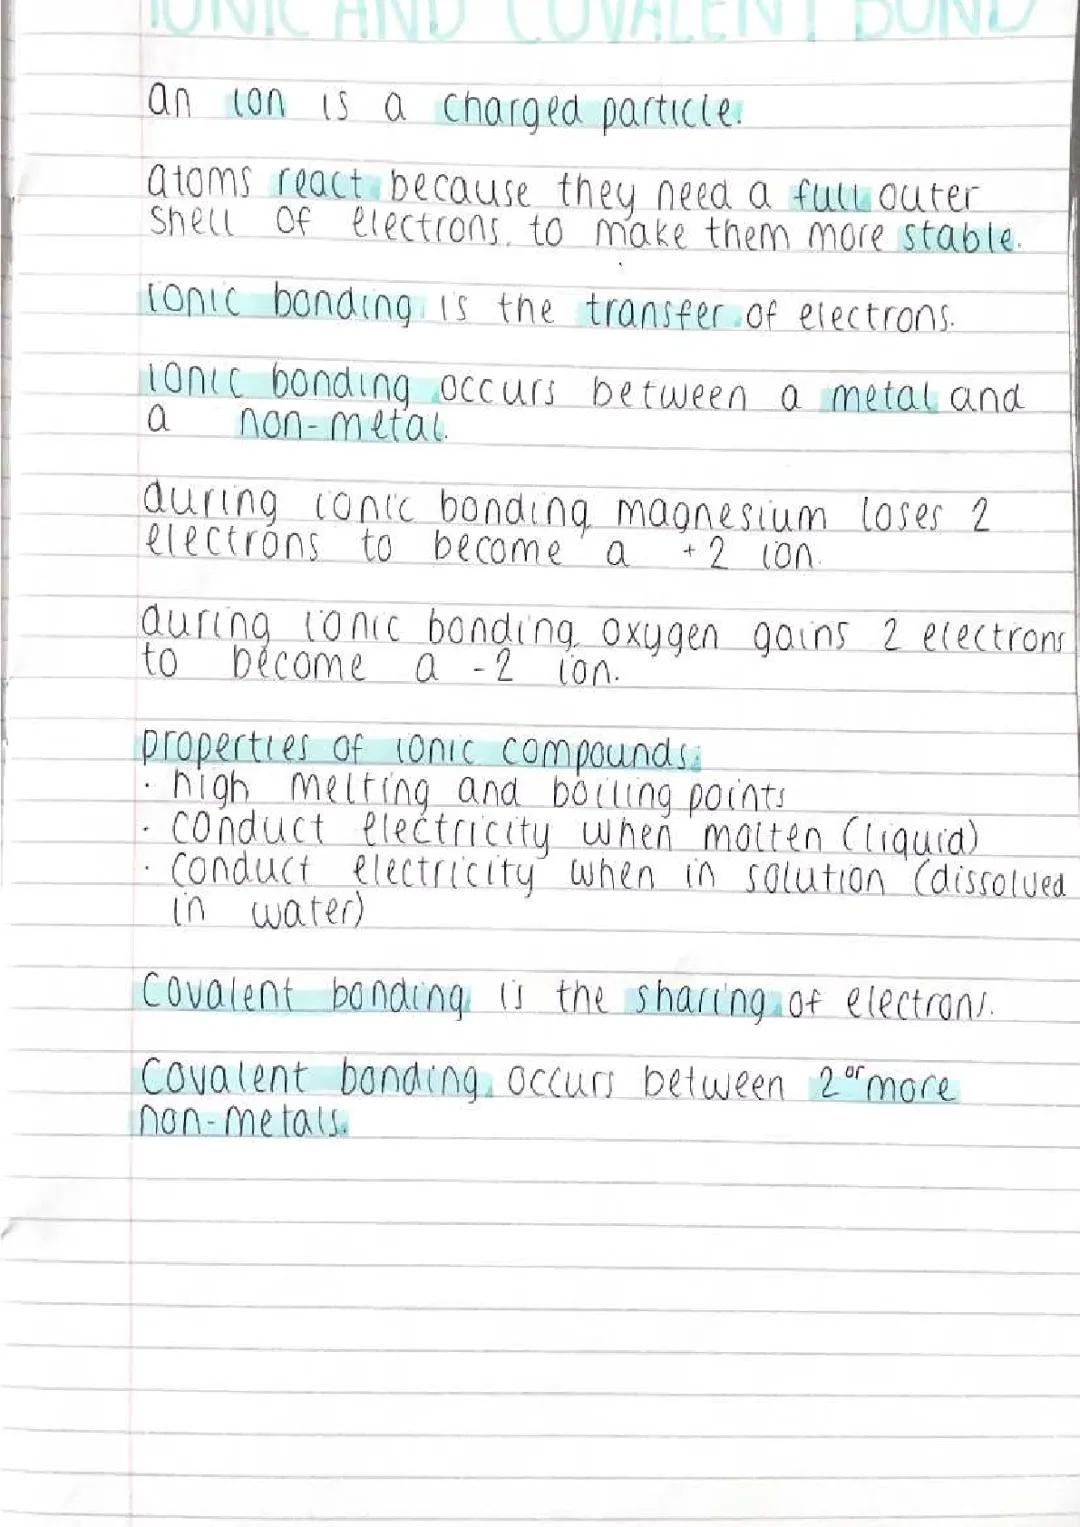 IONIC AND COVALENT BOND
an ion is a charged particle.
atoms react because they need a full outer
shell of electrons, to make them more stable.
ionic bonding is the transfer of electrons.
ionic bonding occurs between a metal and
a non-metal.
during ionic bonding, magnesium loses 2
electrons to become a +2 ion.
during ionic bonding, oxygen gains 2 electrons
to become a -2 ion.
properties of ionic compounds:
· high melting and boiling points
· conduct electricity when molten (liquid)
· conduct electricity when in solution (dissolved
in water)
Covalent bonding is the sharing of electrons.
Covalent bonding occurs between 2 or more
non-metals.